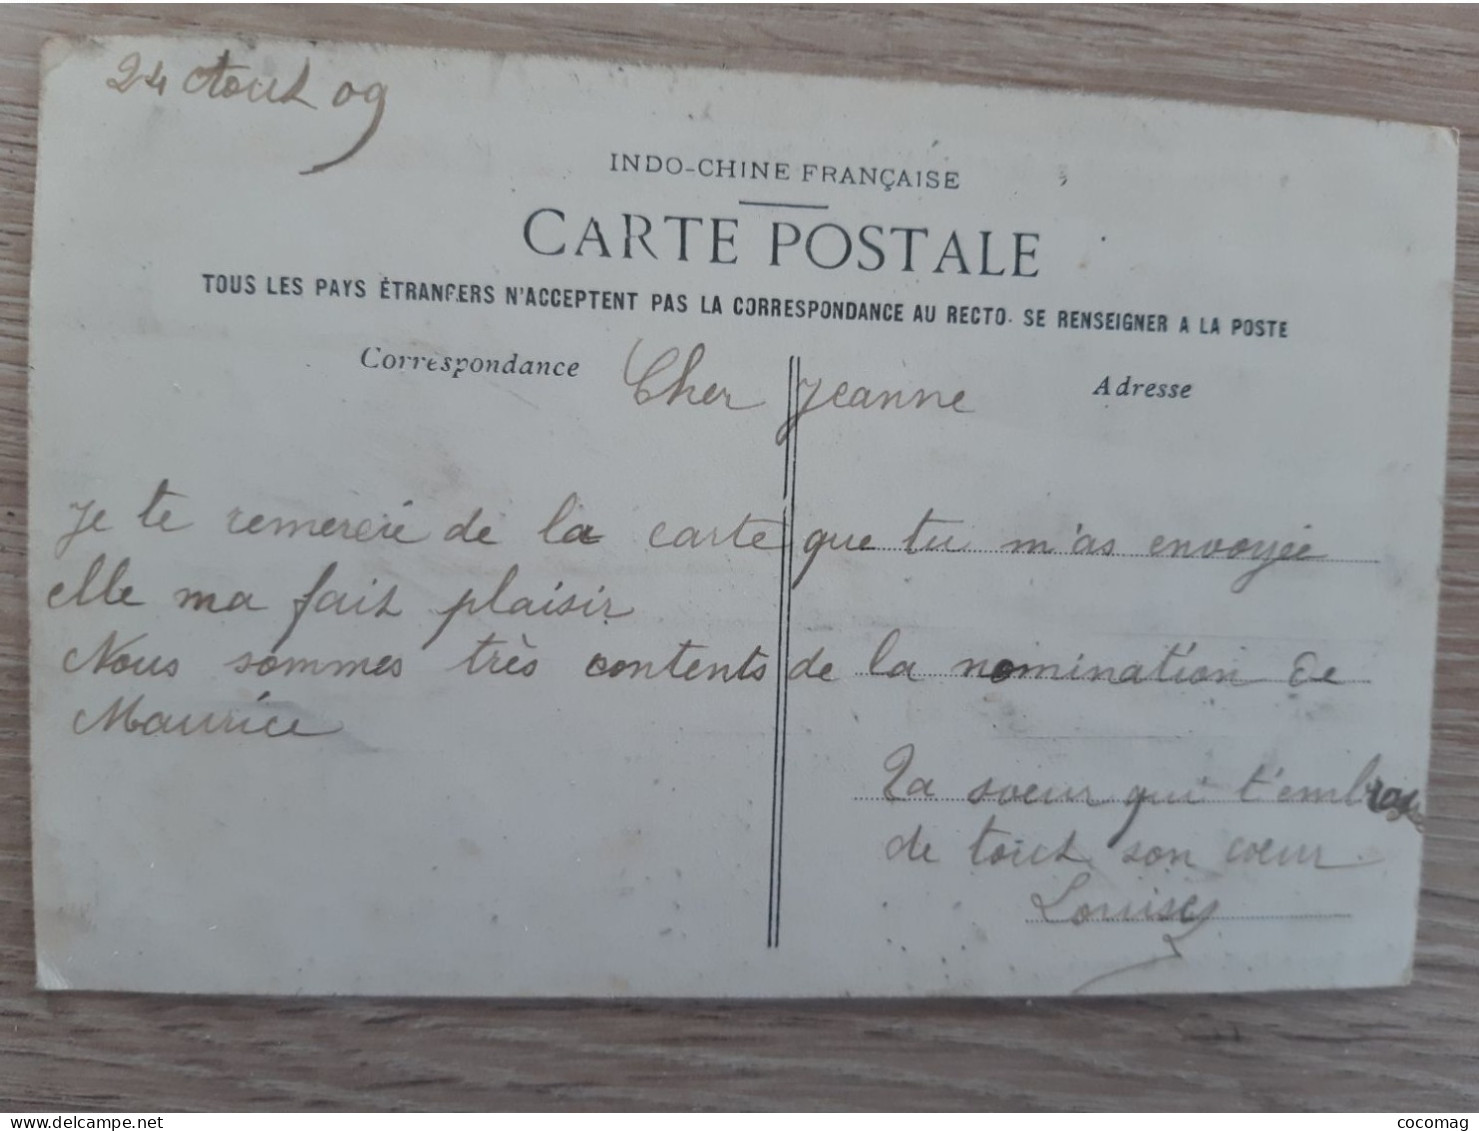 24 Aout 09
INDO-CHINE FRANÇAISE
CARTE POSTALE
TOUS LES PAYS ÉTRANGERS N'ACCEPTENT PAS LA CORRESPONDANCE AU RECTO. SE RENSEIGNER A LA POSTE
Correspondance
Adresse
Cher Jeanne
Je te remercie de la carte que tu m'as envoyée
elle ma fait plaisir
Nous sommes très contents de la nomination de
Maurice
Ta soeur qui t'embrasse
de tout son coeur
Louise
cocomag
delcampe.net